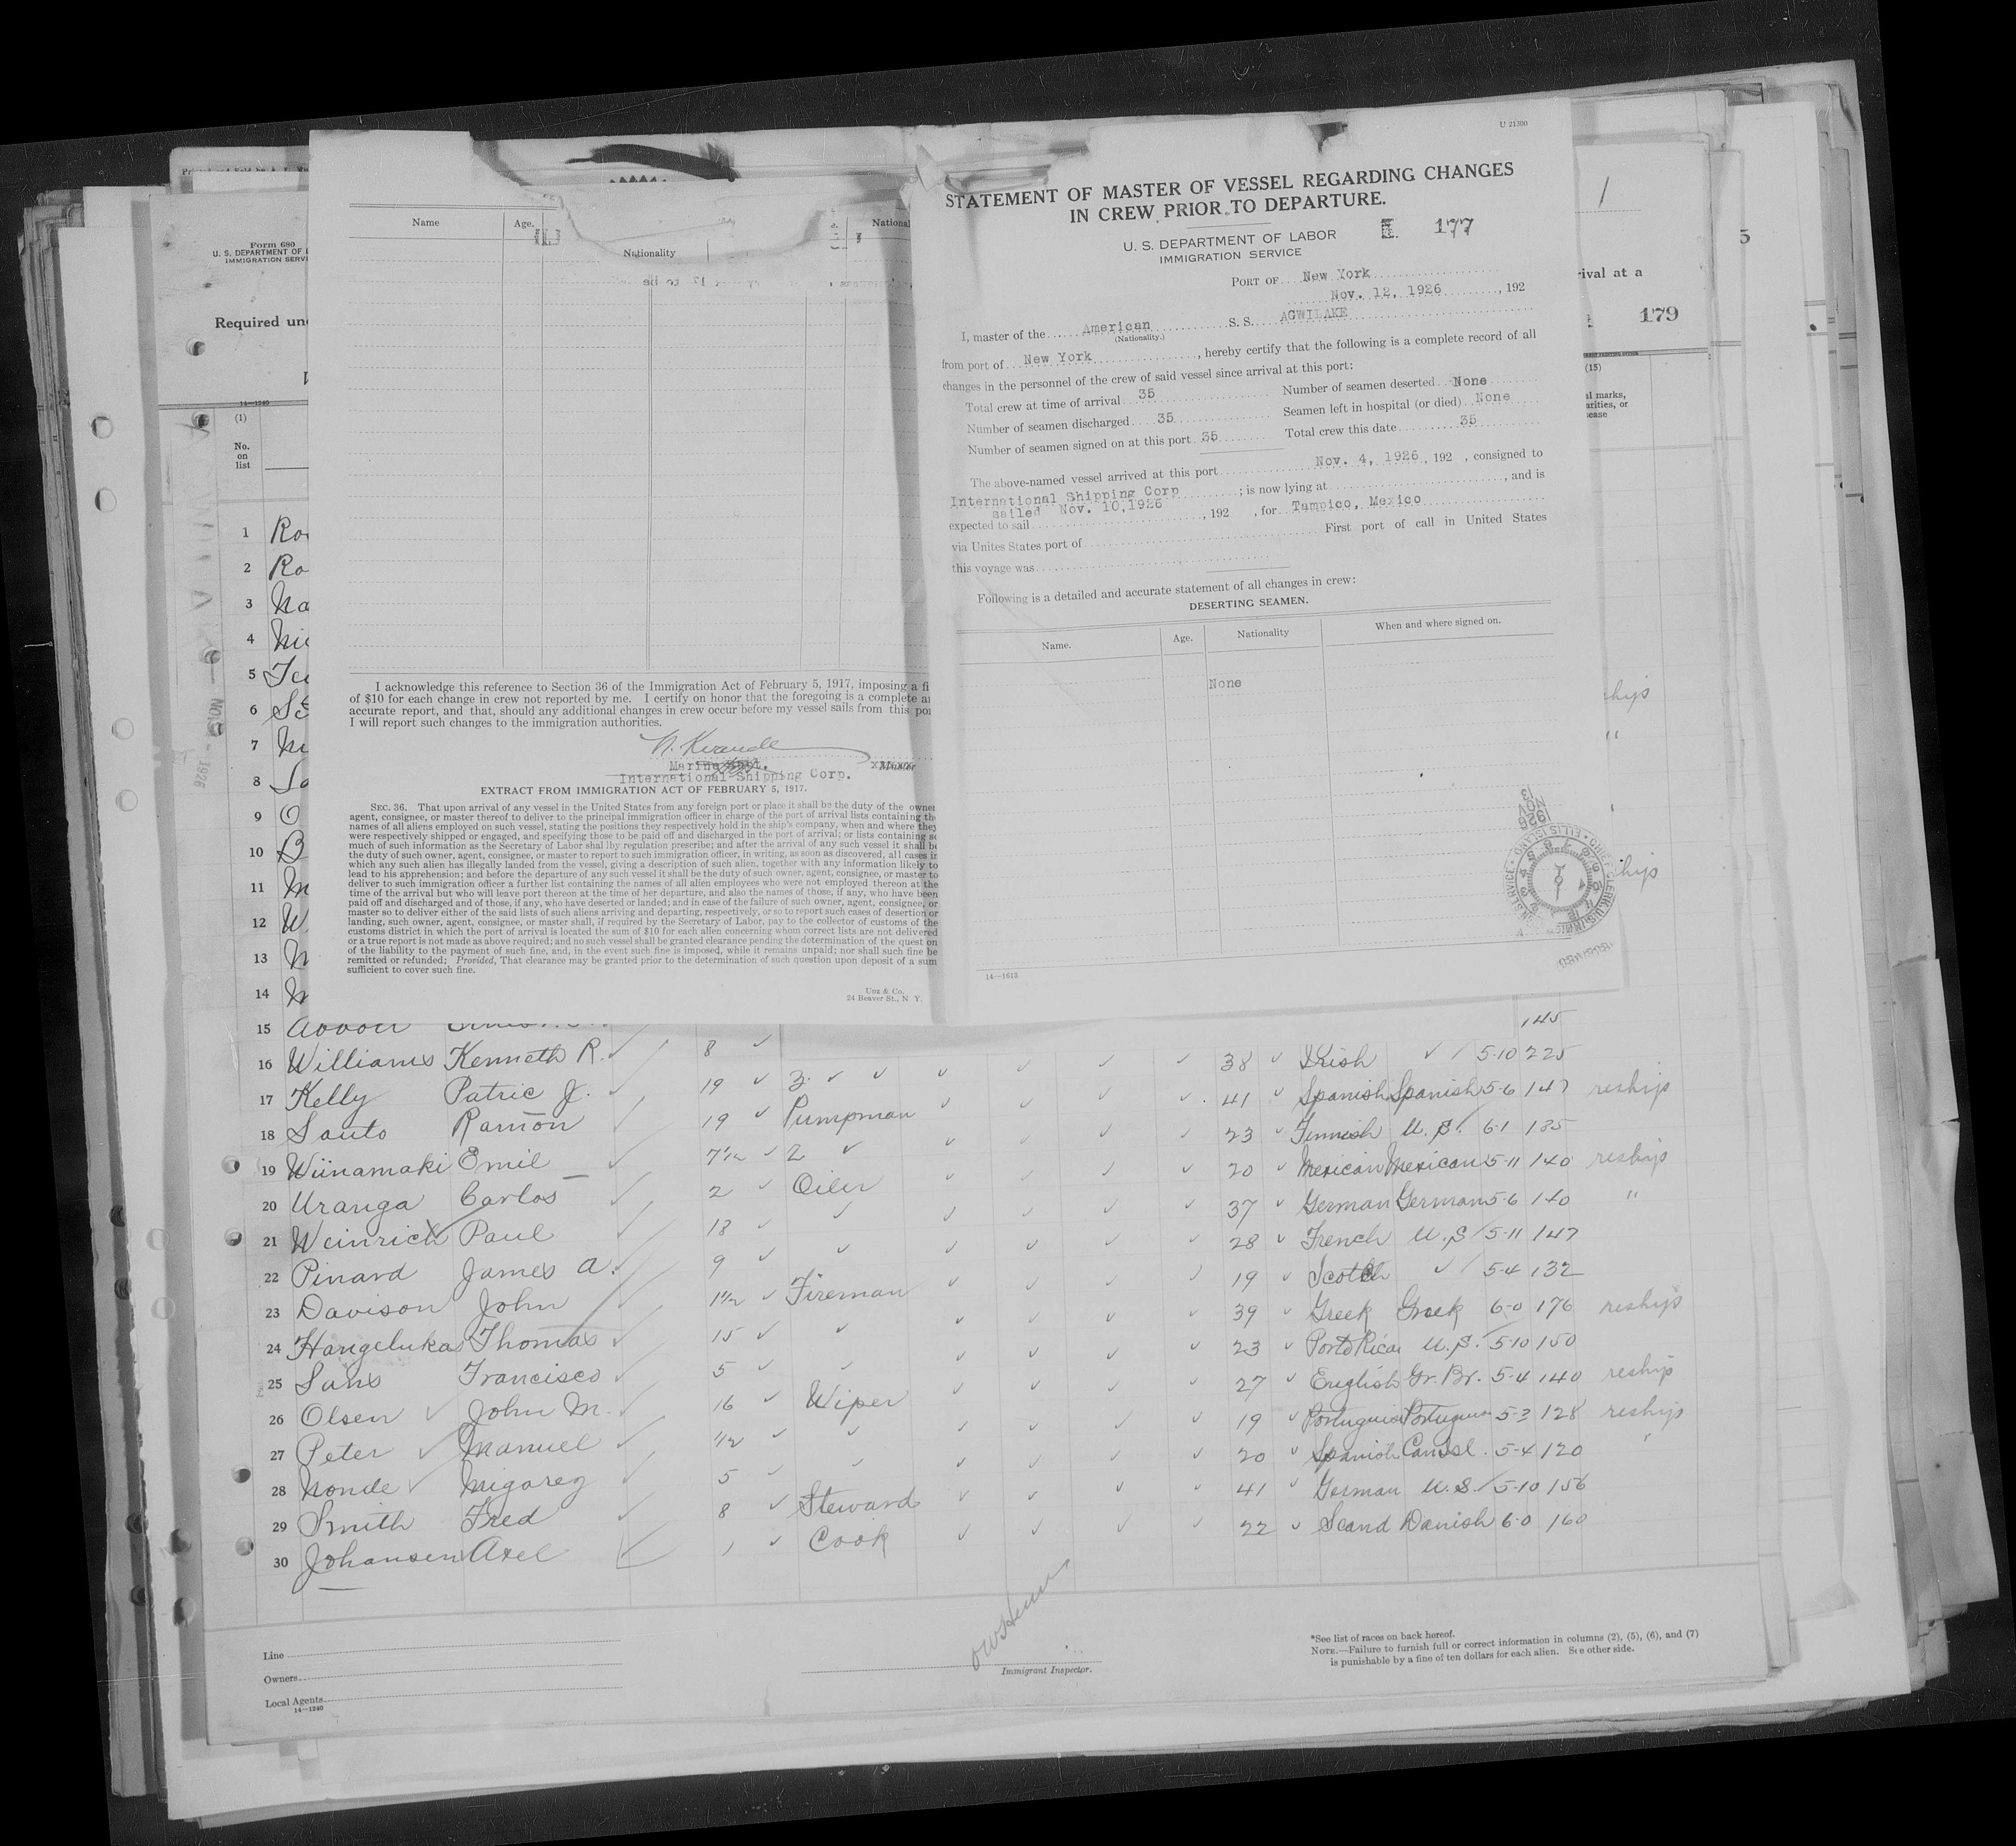 U 21300
STATEMENT OF MASTER OF VESSEL REGARDING CHANGES
IN CREW PRIOR TO DEPARTURE.
177
U. S. DEPARTMENT OF LABOR
IMMIGRATION SERVICE
PORT OF New York
Nov. 12, 1926, 192
I, master of the American S. S. AGWILAKE
(Nationality.)
from port of New York, hereby certify that the following is a complete record of all
changes in the personnel of the crew of said vessel since arrival at this port:
Total crew at time of arrival 35 Number of seamen deserted None
Number of seamen discharged 35 Seamen left in hospital (or died) None
Number of seamen signed on at this port 35 Total crew this date 35
The above-named vessel arrived at this port Nov. 4, 1926, 192 , consigned to
International Shipping Corp ; is now lying at , and is
sailed Nov. 10,1926
expected to sail , 192 , for Tampico, Mexico
via Unites States port of First port of call in United States
this voyage was
Following is a detailed and accurate statement of all changes in crew:
DESERTING SEAMEN.
Name. Age. Nationality When and where signed on.
None
14—1613
1926
NOV
13
Name Age. Nationality National
I acknowledge this reference to Section 36 of the Immigration Act of February 5, 1917, imposing a fi
of $10 for each change in crew not reported by me. I certify on honor that the foregoing is a complete a
accurate report, and that, should any additional changes in crew occur before my vessel sails from this por
I will report such changes to the immigration authorities.
Marine Supt. Master
International Shipping Corp.
EXTRACT FROM IMMIGRATION ACT OF FEBRUARY 5, 1917.
SEC. 36. That upon arrival of any vessel in the United States from any foreign port or place it shall be the duty of the owner
agent, consignee, or master thereof to deliver to the principal immigration officer in charge of the port of arrival lists containing the
names of all aliens employed on such vessel, stating the positions they respectively hold in the ship's company, when and where they
were respectively shipped or engaged, and specifying those to be paid off and discharged in the port of arrival; or lists containing so
much of such information as the Secretary of Labor shal lby regulation prescribe; and after the arrival of any such vessel it shall be
the duty of such owner, agent, consignee, or master to report to such immigration officer, in writing, as soon as discovered, all cases in
which any such alien has illegally landed from the vessel, giving a description of such alien, together with any information likely to
lead to his apprehension; and before the departure of any such vessel it shall be the duty of such owner, agent, consignee, or master to
deliver to such immigration officer a further list containing the names of all alien employees who were not employed thereon at the
time of the arrival but who will leave port thereon at the time of her departure, and also the names of those, if any, who have been
paid off and discharged and of those, if any, who have deserted or landed; and in case of the failure of such owner, agent, consignee, or
master so to deliver either of the said lists of such aliens arriving and departing, respectively, or so to report such cases of desertion or
landing, such owner, agent, consignee, or master shall, if required by the Secretary of Labor, pay to the collector of customs of the
customs district in which the port of arrival is located the sum of $10 for each alien concerning whom correct lists are not delivered
or a true report is not made as above required; and no such vessel shall be granted clearance pending the determination of the quest on
of the liability to the payment of such fine, and, in the event such fine is imposed, while it remains unpaid; nor shall such fine be
remitted or refunded; Provided, That clearance may be granted prior to the determination of such question upon deposit of a sum
sufficient to cover such fine.
Unz & Co.
24 Beaver St., N Y.
Form 680
U. S. DEPARTMENT OF L
IMMIGRATION SERV
Required un
14—1240
(1)
No.
on
list
1
5
rival at a
179
(15)
al marks,
arities, or
sease
1 Ro
2 Ro
3 Na
4 Ni
5
6
7
8
9 O
10 B
11 M
12 W
13
14
15 145
16 Williams Kenneth R. 8 38 Irish 5-10 225
17 Kelly Patric J. 19 3 41 Spanish Spanish 5-6 147 reship
18 Santo Ramon 19 Pumpman 23 Finnish U.S. 6-1 185
19 Wiinamaki Emil 7½ 2 20 Mexican Mexican 5-11 140 reship
20 Uranga Carlos 2 Oiler 37 German German 5-6 140 "
21 Weinrich Paul 18 28 French U.S 5-11 147
22 Pinard James A. 9 19 Scotch 5-4 132
23 Davison John 1½ Fireman 39 Greek Greek 6-0 176 reship
24 Hangelukas Thomas 15 23 Porto Rican U.S. 5-10 150
25 Sans Francisco 5 27 English Gr. Br. 5-4 140 reship
26 Olsen John M. 16 Wiper 19 Portuguese Portuguese 5-3 128 reship
27 Peter Manuel ½ 20 Spanish 5-4 120
28 Nonde 5 41 German U.S. 5-10 156
29 Smith Fred 8 Steward 22 Scand Danish 6-0 160
30 Johansen Axel 1 Cook
Line
Owners
Local Agents
14—1240
Immigrant Inspector.
*See list of races on back hereof.
NOTE.—Failure to furnish full or correct information in columns (2), (5), (6), and (7)
is punishable by a fine of ten dollars for each alien. See other side.